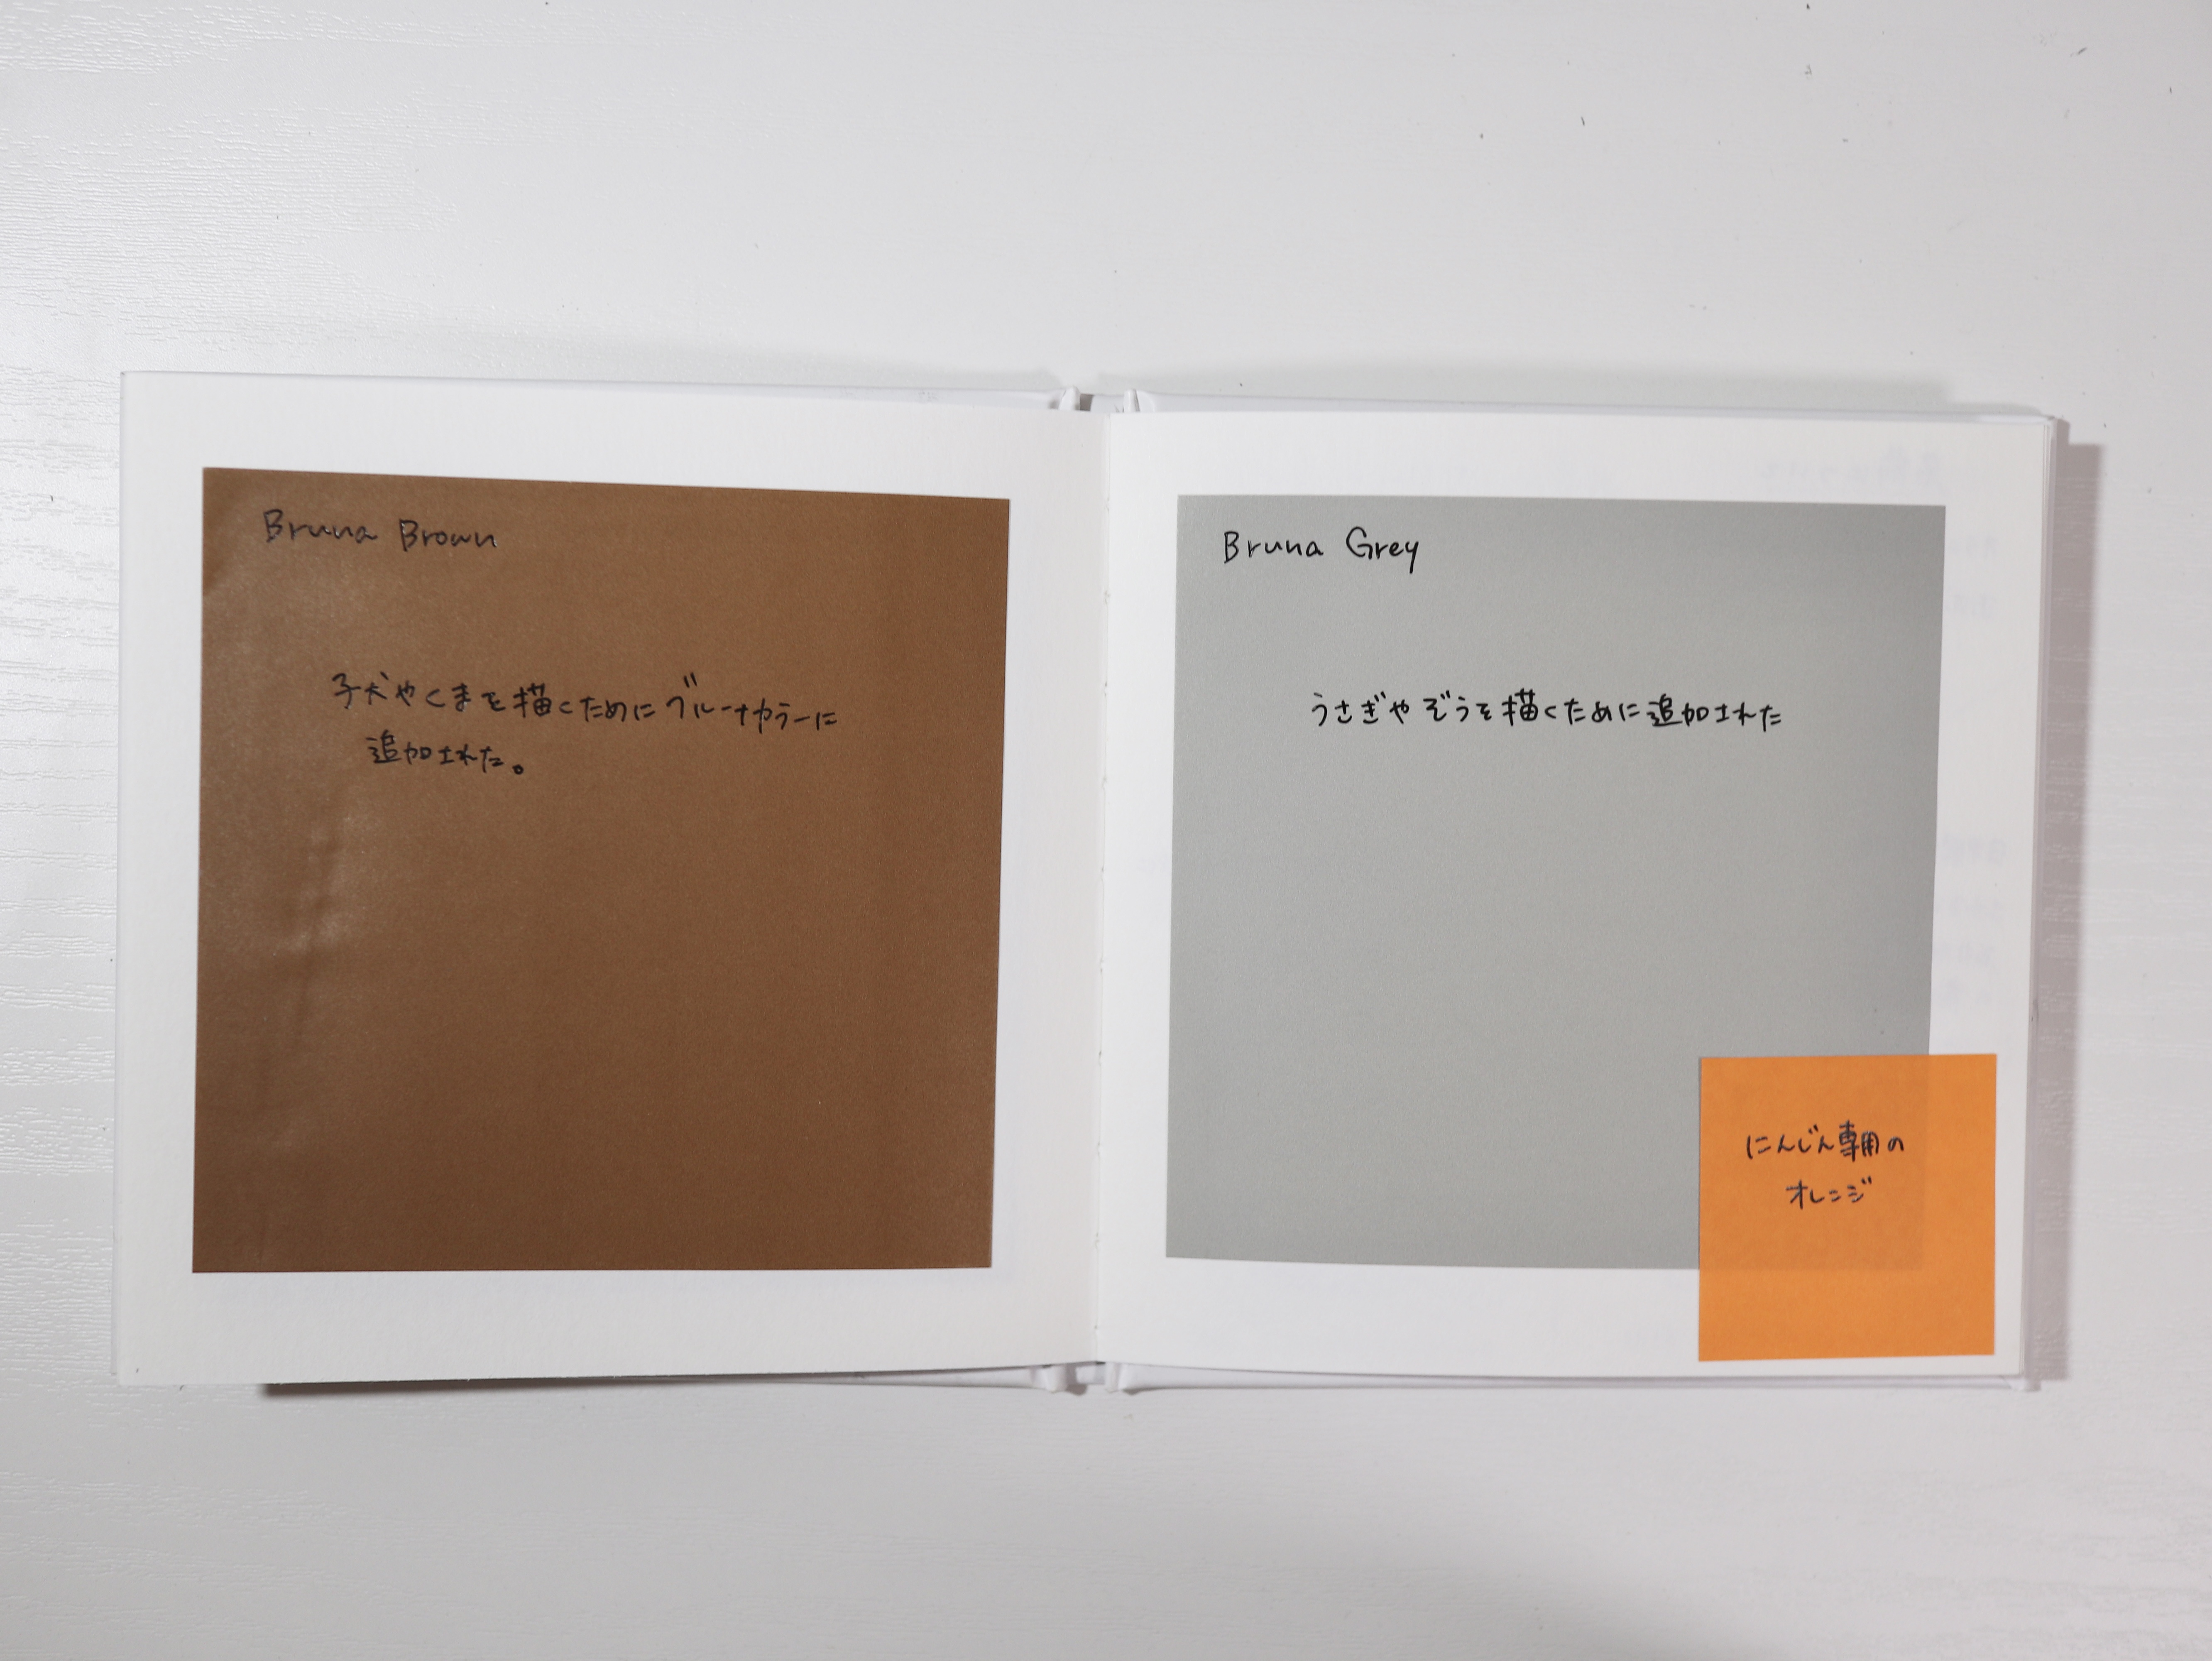 Bruna Brown
子犬やくまを描くためにブルーナカラーに
追加された。
Bruna Grey
うさぎやぞうを描くために追加された
にんじん専用の
オレンジ